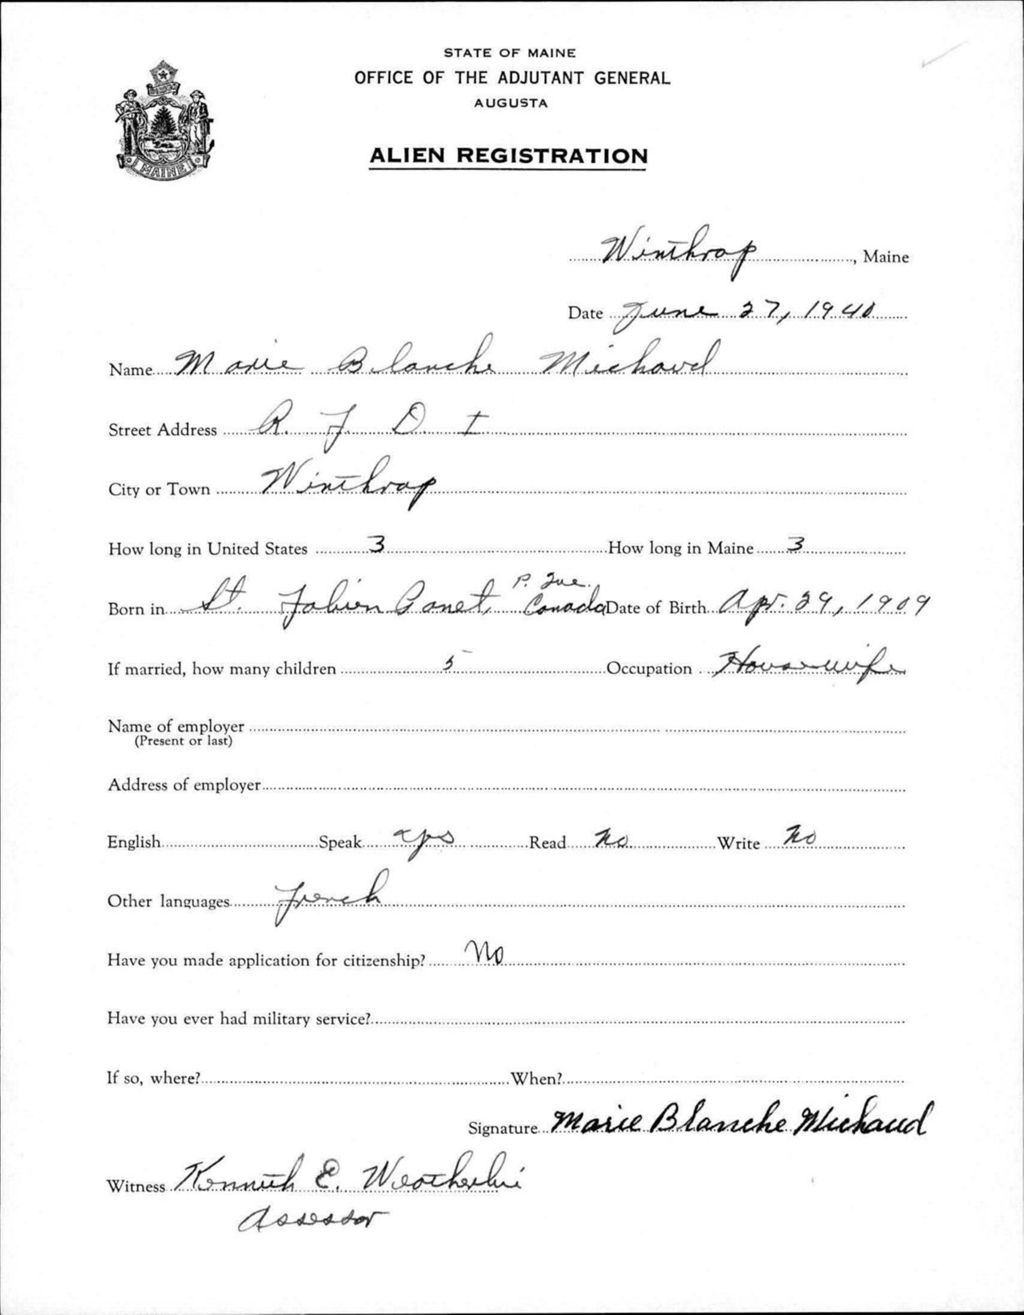 STATE OF MAINE
OFFICE OF THE ADJUTANT GENERAL
AUGUSTA
ALIEN REGISTRATION
MAINE
Winthrop, Maine
Date June 27, 1940
Name Marie Blanche Michaud
Street Address R. F. D. 1
City or Town Winthrop
How long in United States 3 How long in Maine 3
P. Que.
Born in St. Fabien Panet, Canada Date of Birth Apr. 29, 1909
If married, how many children 5 Occupation Housewife
Name of employer
(Present or last)
Address of employer
English Speak yes Read No Write No
Other languages French
Have you made application for citizenship? No
Have you ever had military service?
If so, where? When?
Signature Marie Blanche Michaud
Witness Kenneth E.
Assessor